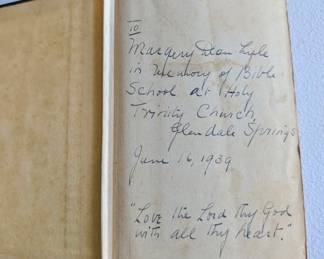 To
Margery Dean Lyle
in memory of Bible
School at Holy
Trinity Church,
Glendale Springs
June 16, 1939
"Love the Lord thy God
with all thy heart."